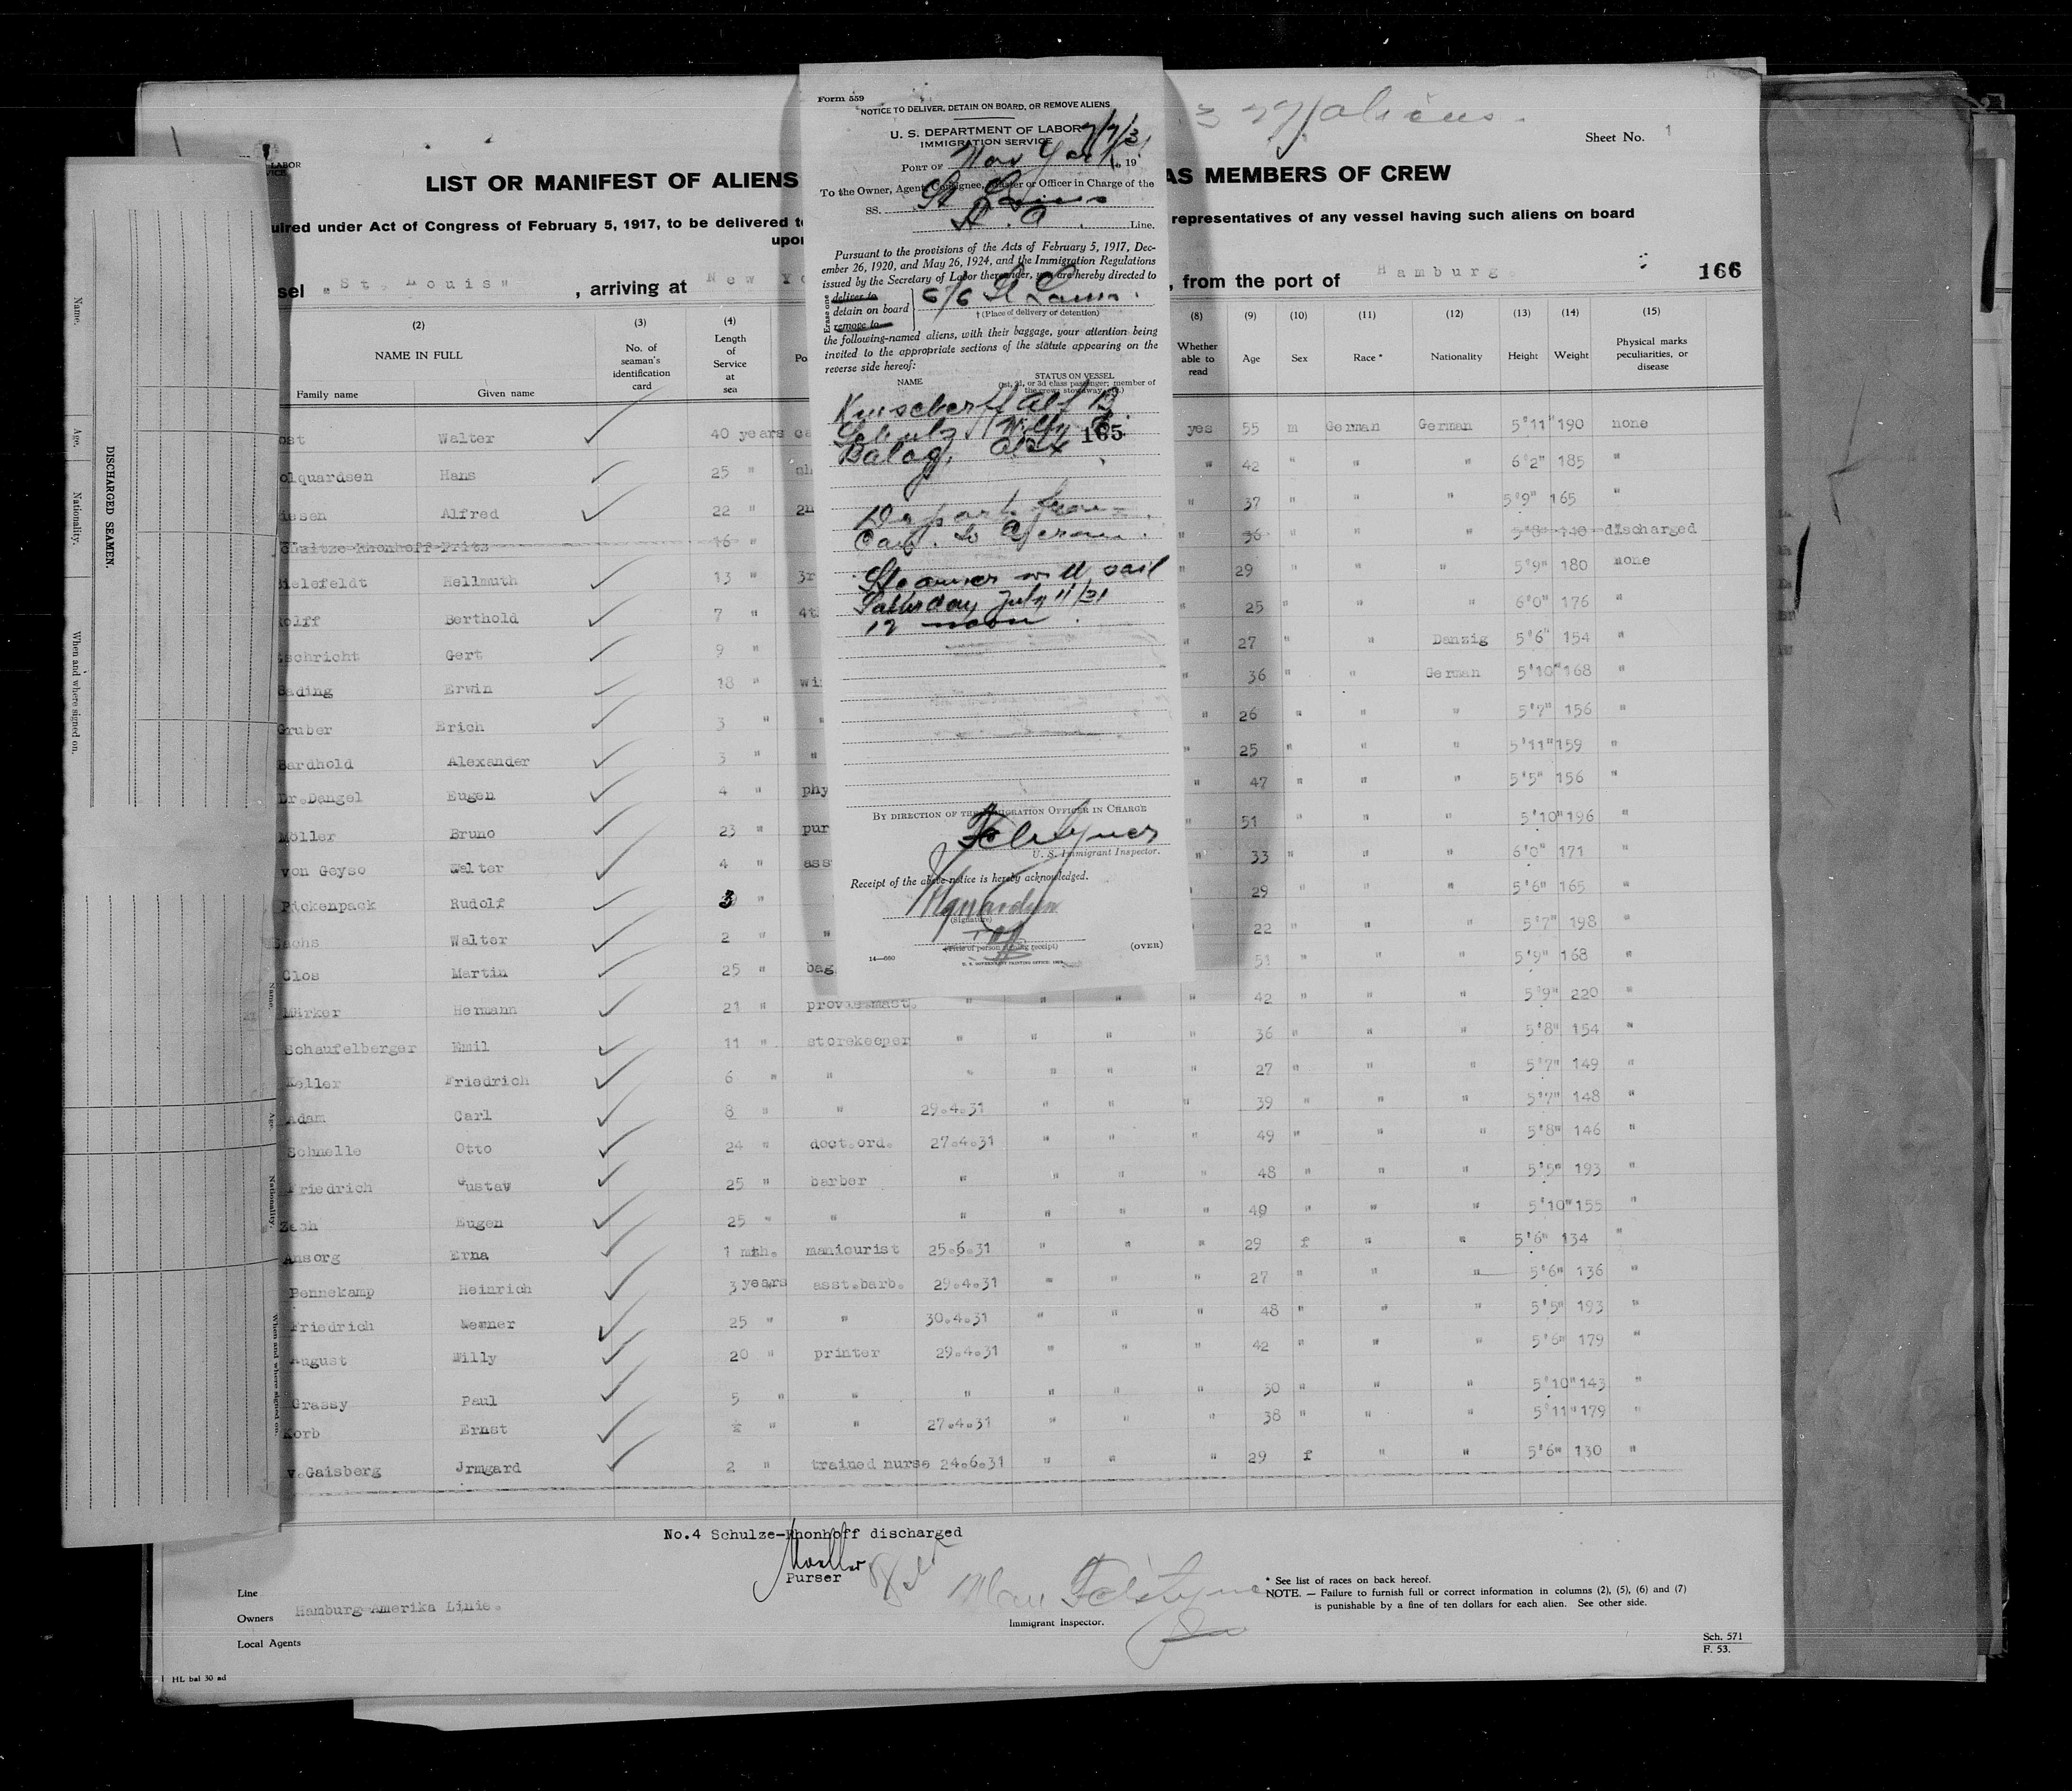 Form 559
NOTICE TO DELIVER, DETAIN ON BOARD, OR REMOVE ALIENS
U. S. DEPARTMENT OF LABOR
IMMIGRATION SERVICE
7/7/31
PORT OF New York, 19
To the Owner, Agent, Consignee, Master or Officer in Charge of the
SS. St Louis
H. A. Line.
Pursuant to the provisions of the Acts of February 5, 1917, Dec-
ember 26, 1920, and May 26, 1924, and the Immigration Regulations
issued by the Secretary of Labor thereunder, you are hereby directed to
Erase one
deliver to
detain on board
remove to
St Louis
† (Place of delivery or detention)
the following-named aliens, with their baggage, your attention being
invited to the appropriate sections of the statute appearing on the
reverse side hereof:
NAME STATUS ON VESSEL
(1st, 2d, or 3d class passenger; member of
the crew; stowaway, etc.)
Alf B.
Schulz Willy E.
165
Balog, Alex
Depart from
Steamer will sail
Saturday July 11/31
12 noon
BY DIRECTION OF THE IMMIGRATION OFFICER IN CHARGE
Felstyner
U. S. Immigrant Inspector.
Receipt of the above notice is hereby acknowledged.
(Signature)
(Title of person signing receipt)
(OVER)
14—660
U. S. GOVERNMENT PRINTING OFFICE
aliens.
Sheet No. 1
LABOR
LIST OR MANIFEST OF ALIENS AS MEMBERS OF CREW
uired under Act of Congress of February 5, 1917, to be delivered to representatives of any vessel having such aliens on board
upon
sel "St. Louis", arriving at New Yo , from the port of Hamburg.
166
(2) (3) (4) (8) (9) (10) (11) (12) (13) (14) (15)
NAME IN FULL Family name Given name No. of seaman's identification card Length of Service at sea Po Whether able to read Age Sex Race * Nationality Height Weight Physical marks peculiarities, or disease
ost Walter 40 years ca yes 55 m German German 5'11" 190 none
olquardsen Hans 25 " ch " 42 " " " 6'2" 185 "
issen Alfred 22 " 2n " 37 " " " 5'9" 165 "
chultze-Rhonhoff Fritz 16 " " 36 " " " 5'8" 140 discharged
Bielefeldt Hellmuth 13 " 3r " 29 " " " 5'9" 180 none
Rolff Berthold 7 " 4t " 25 " " " 6'0" 176 "
schricht Gert 9 " " 27 " " Danzig 5'6" 154 "
Bading Erwin 18 " wi " 36 " " German 5'10" 168 "
Gruber Erich 3 " " " 26 " " " 5'7" 156 "
Bardhold Alexander 3 " " " 25 " " " 5'11" 159 "
Dr.Dangel Eugen 4 " phy " 47 " " " 5'5" 156 "
Möller Bruno 23 " pur " 51 " " " 5'10" 196 "
von Geyso Walter 4 " ass " 33 " " " 6'0" 171 "
Pickenpack Rudolf 3 " " 29 " " " 5'6" 165 "
Sachs Walter 2 " " " 22 " " " 5'7" 198 "
Clos Martin 25 " bag 51 " " " 5'9" 168 "
Märker Hermann 21 " prov.mast. " " " " 42 " " " 5'9" 220 "
Schaufelberger Emil 11 " storekeeper " " " " 36 " " " 5'8" 154 "
Keller Friedrich 6 " " " " " " 27 " " " 5'7" 149 "
Adam Carl 8 " " 29.4.31 " " " 39 " " " 5'7" 148 "
Schnelle Otto 24 " doct.ord. 27.4.31 " " " 49 " " " 5'8" 146 "
Friedrich Gustav 25 " barber " " " " 48 " " " 5'5" 193 "
Zech Eugen 25 " " " " " " 49 " " " 5'10" 155 "
Ansorg Erna 1 mth. manicurist 25.6.31 " " " 29 f " " 5'6" 134 "
Bennekamp Heinrich 3 years asst.barb. 29.4.31 " " " 27 " " " 5'6" 136 "
Friedrich Werner 25 " " 30.4.31 " " " 48 " " " 5'5" 193 "
August Willy 20 " printer 29.4.31 " " " 42 " " " 5'6" 179 "
Grassy Paul 5 " " " " " " 30 " " " 5'10" 143 "
Korb Ernst " " 27.4.31 " " " 38 " " " 5'11" 179 "
v.Gaisberg Jrmgard 2 " trained nurse 24.6.31 " " " 29 f " " 5'6" 130 "
No.4 Schulze-Rhonhoff discharged
Moeller
Purser
Line
Owners Hamburg-Amerika Linie.
Local Agents
Felstyner
Immigrant Inspector.
* See list of races on back hereof.
NOTE. — Failure to furnish full or correct information in columns (2), (5), (6) and (7)
is punishable by a fine of ten dollars for each alien. See other side.
Sch. 571
F. 53.
HL bal 30 ad
DISCHARGED SEAMEN.
Name.
Age.
Nationality.
When and where signed on.
Name.
Age.
Nationality.
When and where signed on.